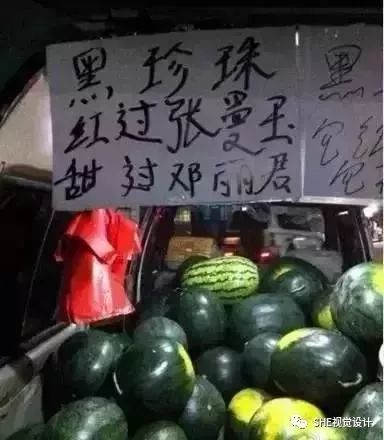 黑珍珠
红过张曼玉
甜过邓丽君
黑
包红
包
SHE视觉设计